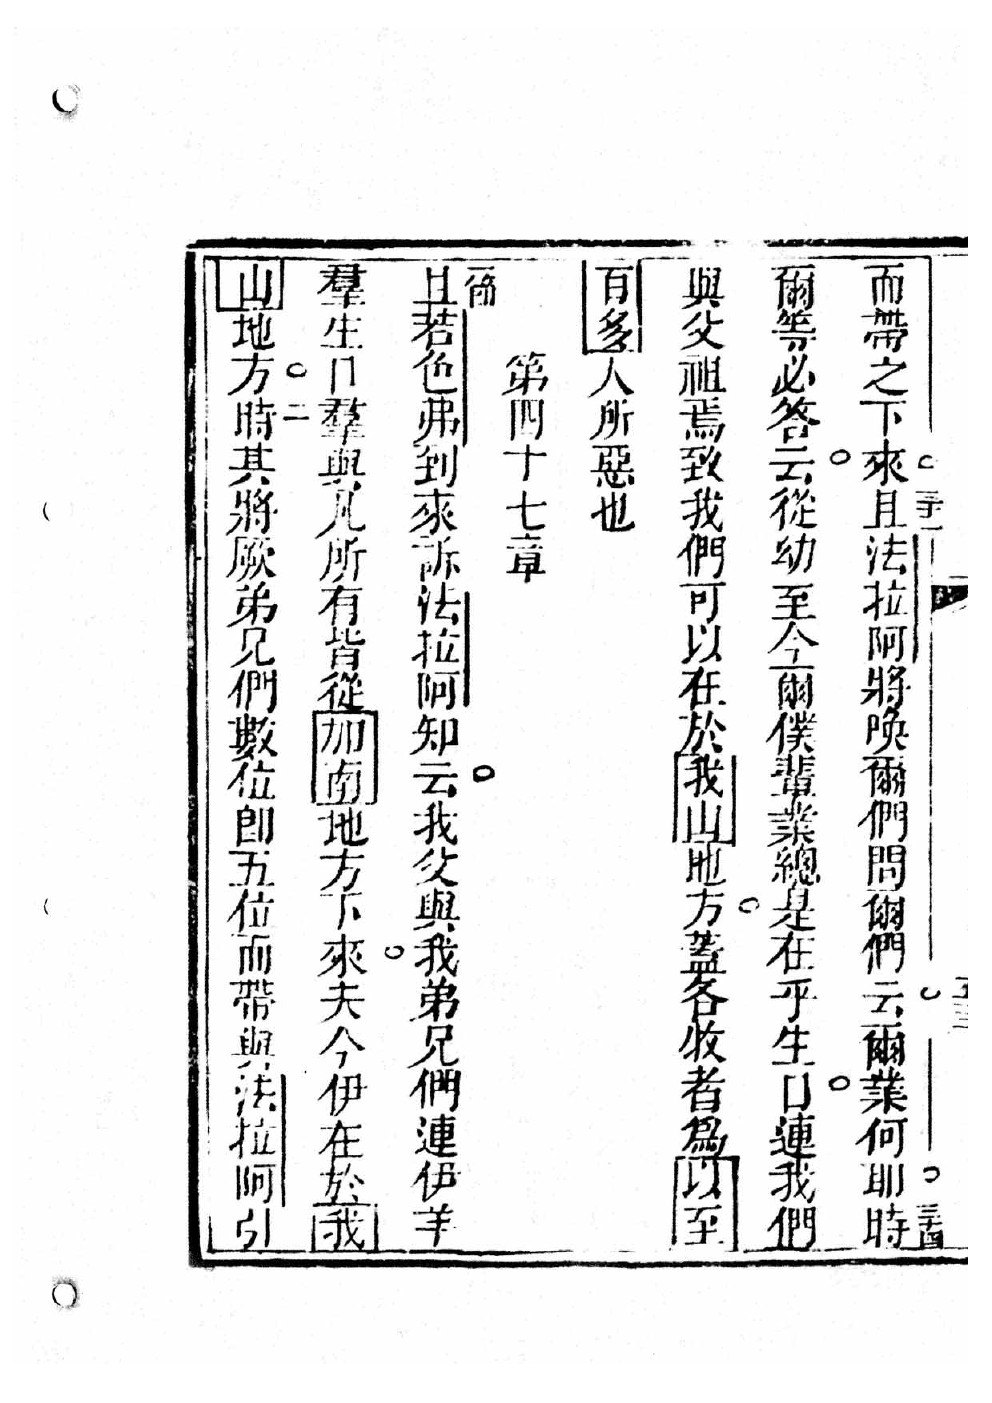 而帶之下來且法拉阿將喚爾們問爾們云爾業何耶時
爾等必答云從幼至今爾僕輩業總是在乎生口連我們
與父祖焉致我們可以在於我山地方蓋各收者爲以至
百多人所惡也
第四十七章
節
且若色弗到來訴法拉阿知云我父與我弟兄們連伊羊
羣生口羣與凡所有皆從加南地方下來夫今伊在於我
二
山地方時其將厥弟兄們數位卽五位而帶與法拉阿引